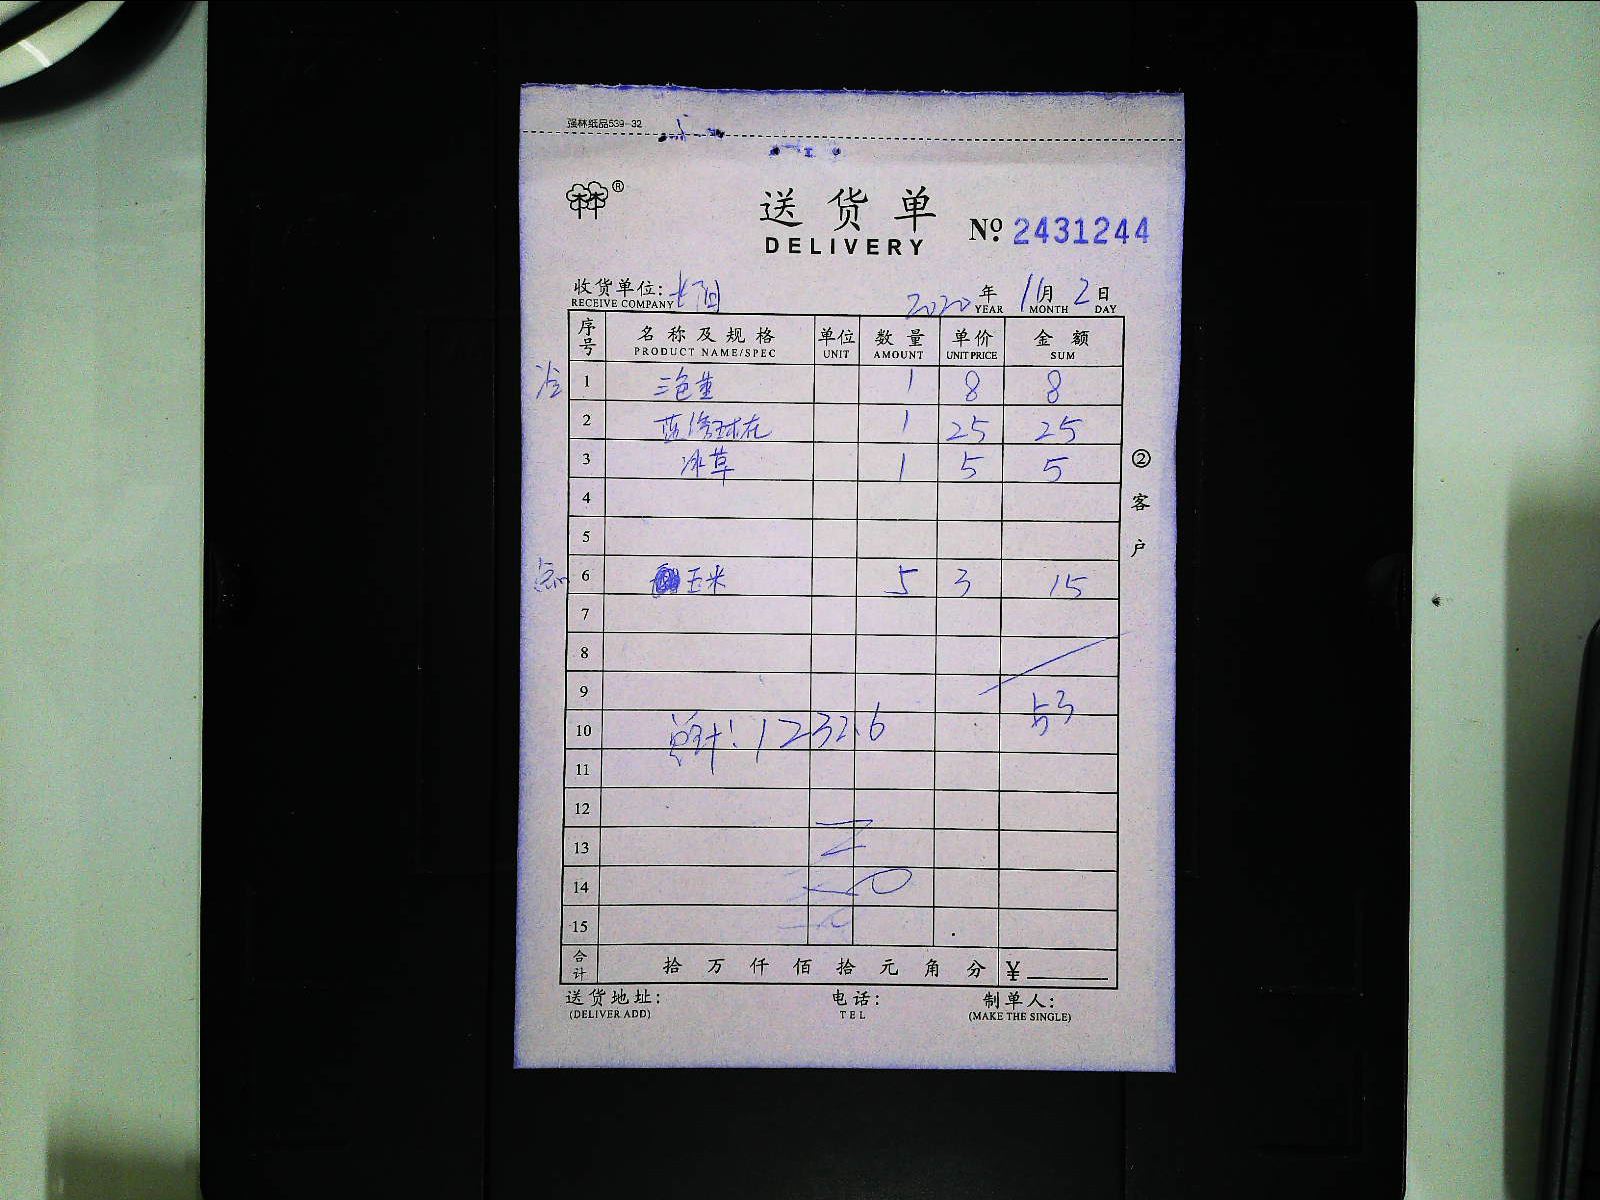 强林纸品539-32
林林®
送货单
DELIVERY
№ 2431244
收货单位:
RECEIVE COMPANY
2020年 11月 2日
YEAR MONTH DAY
序号 名称及规格 单位 数量 单价 金额
PRODUCT NAME/SPEC UNIT AMOUNT UNIT PRICE SUM
冷 1 三色堇 1 8 8
2 1 25 25
3 冰草 1 5 5
4
5
6 玉米 5 3 15
7
8
9
53
10 总计: 1232.6
11
12
13
14
15
合计 拾 万 仟 佰 拾 元 角 分 ¥
送货地址: 电话: 制单人:
(DELIVER ADD) TEL (MAKE THE SINGLE)
②客户